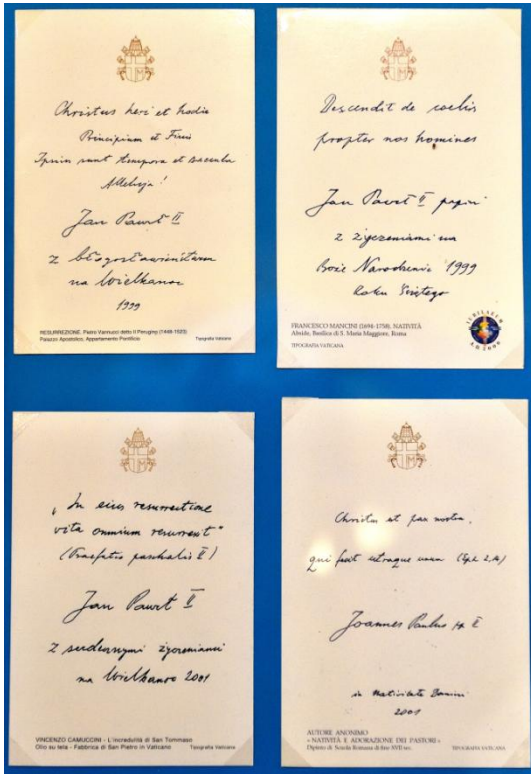 Christus heri et hodie
Principium et Finis
Ipsius sunt tempora et saecula
Alleluja!
Jan Paweł II
z błogosławieństwem
na Wielkanoc
1999
RESURREZIONE, Pietro Vannucci detto il Perugino (1448-1523)
Palazzo Apostolico, Appartamento Pontificio
Tipografia Vaticana
Descendit de coelis
propter nos homines
Jan Paweł II papież
z życzeniami na
Boże Narodzenie 1999
Roku Świętego
FRANCESCO MANCINI (1694-1758), NATIVITÀ
Abside, Basilica di S. Maria Maggiore, Roma
TIPOGRAFIA VATICANA
IUBILAEUM
A.D. 2000
„In eius resurrectione
vita omnium resurrexit"
(Praefatio paschalis II)
Jan Paweł II
z serdecznymi życzeniami
na Wielkanoc 2001
VINCENZO CAMUCCINI - L'incredulità di San Tommaso
Olio su tela - Fabbrica di San Pietro in Vaticano
Tipografia Vaticana
Christus est pax nostra,
qui fecit utraque unum (Eph 2,14)
Joannes Paulus pp II
in Nativitate Domini
2001
AUTORE ANONIMO
« NATIVITÀ E ADORAZIONE DEI PASTORI »
Dipinto di Scuola Romana di fine XVII sec.
TIPOGRAFIA VATICANA